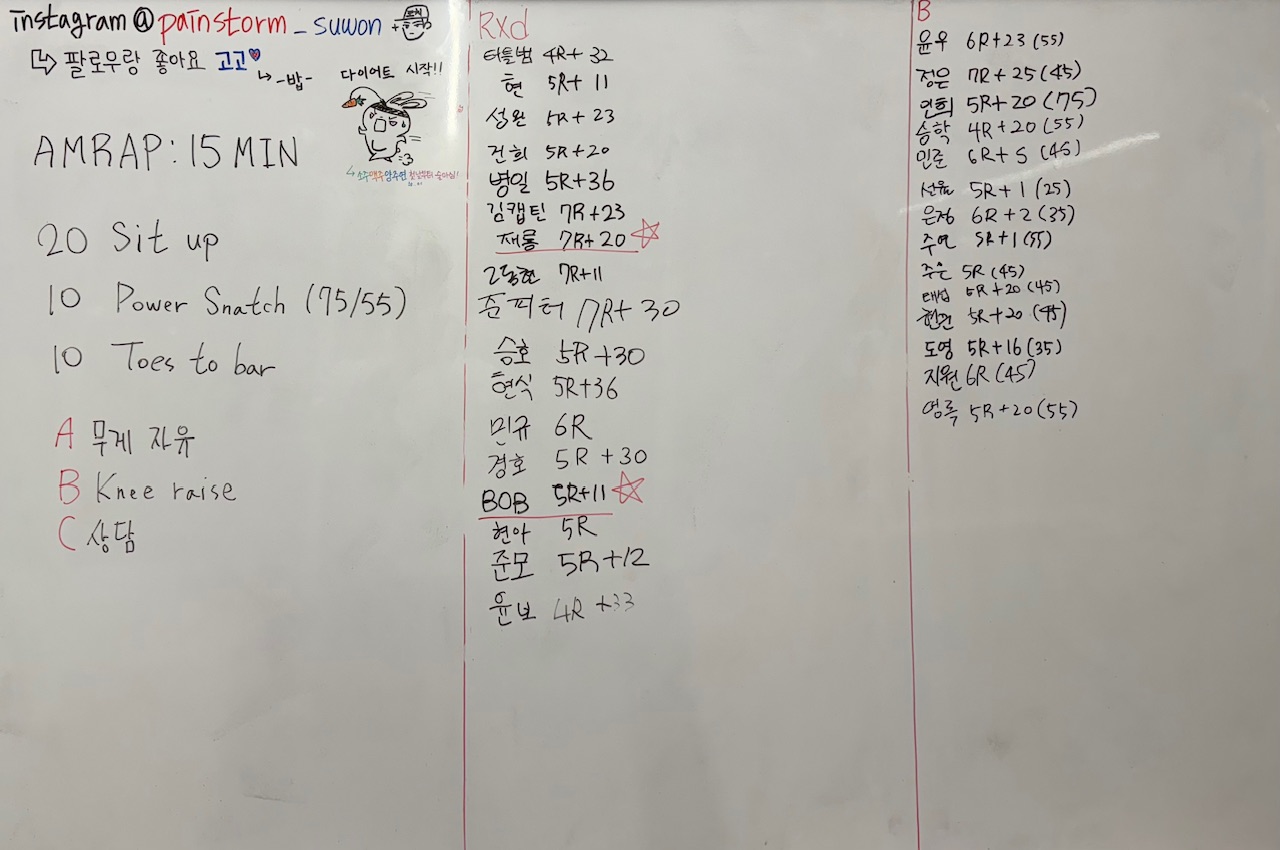 instagram @ painstorm _ suwon +
팔로우랑 좋아요 고고♥
↳ -밥-
다이어트 시작!!
AMRAP : 15 MIN
20 Sit up
10 Power Snatch (75/55)
10 Toes to bar
A 무게 자유
B Knee raise
C 상담
Rxd
터틀범 4R+ 32
현 5R+ 11
성완 5R+ 23
건희 5R+20
병일 5R+36
김캡틴 7R+23
재롱 7R+20
7R+11
준피터 7R+ 30
승호 5R+30
현식 5R+36
민규 6R
경호 5R +30
BOB 5R+11
현아 5R
준모 5R+12
윤보 4R +33
B
윤우 6R+23 (55)
정은 7R+25 (45)
연희 5R+20 (75)
승학 4R+20 (55)
인준 6R+5 (45)
선율 5R+1 (25)
은정 6R+2 (35)
주연 5R+1 (55)
주은 5R (45)
태섭 5R+20 (45)
5R+20 (45)
도영 5R+16 (35)
지원 6R (45)
영록 5R+20 (55)